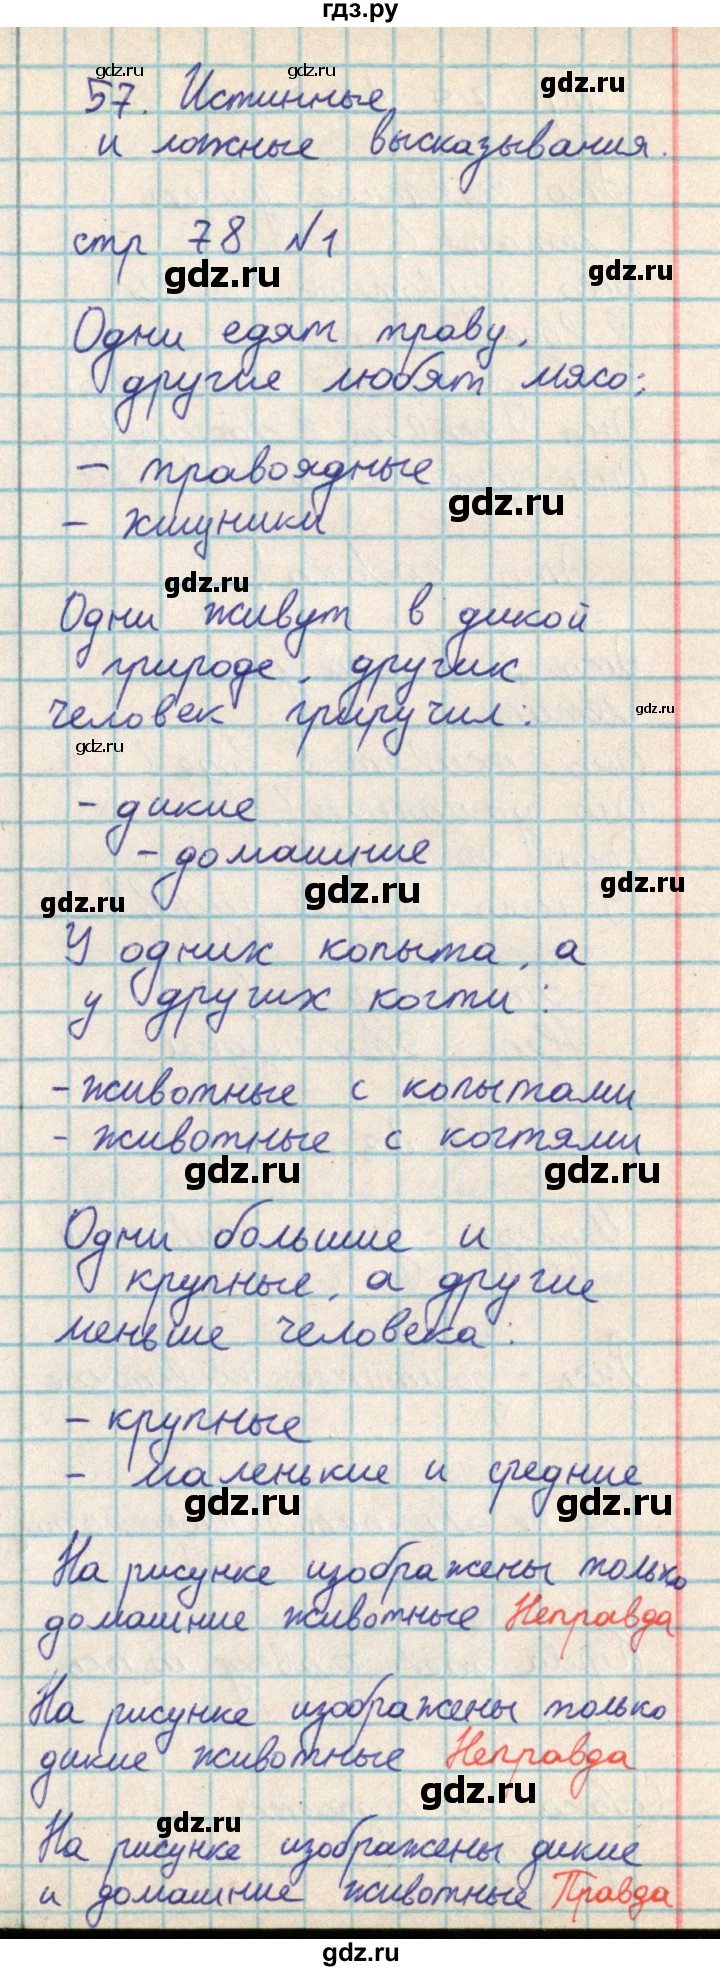 гдз.ру
gdz.ru gdz.ru gdz.ru
57. Истинные
и ложные высказывания.
стр 78 №1
gdz.ru gdz.ru
Одни едят траву,
другие любят мясо:
- травоядные
gdz.ru
- хищники
gdz.ru
Одни живут в дикой
природе, других
человек приручил:
gdz.ru
gdz.ru
- дикие
- домашние
gdz.ru gdz.ru gdz.ru
У одних копыта, а
у других когти:
- животные с копытами
- животные с когтями
gdz.ru gdz.ru
Одни большие и
крупные, а другие
меньше человека:
- крупные
- маленькие и средние
gdz.ru gdz.ru
На рисунке изображены только
домашние животные Неправда
На рисунке изображены только
дикие животные Неправда
gdz.ru
gdz.ru
На рисунке изображены дикие
и домашние животные Правда
gdz.ru